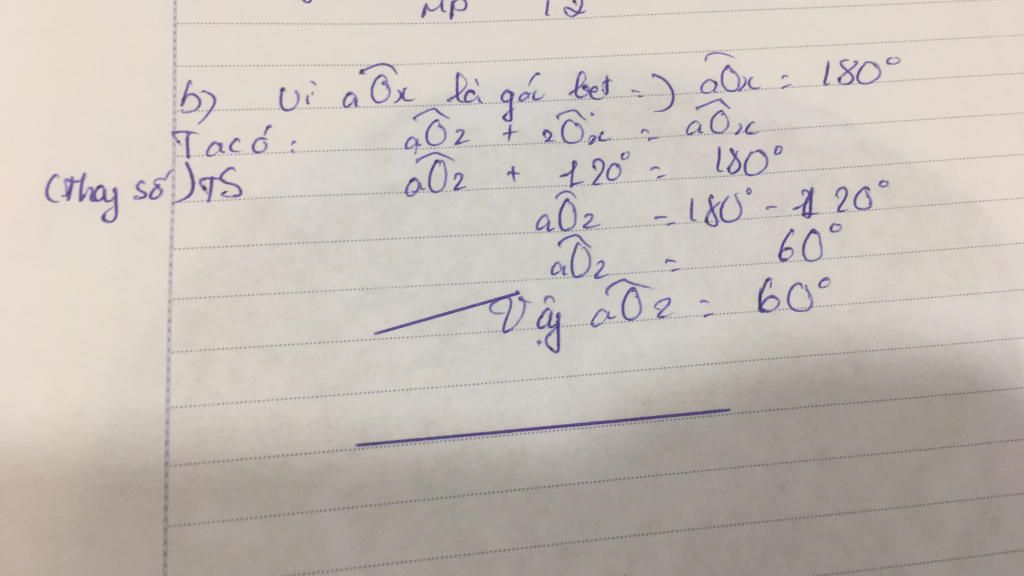 MP 12
b) Vì aOx là góc bet => aOx = 180°
Ta có: aOz + zOx = aOx
(Thay số) TS aOz + 120° = 180°
aOz = 180° - 120°
aOz = 60°
Vậy aOz = 60°